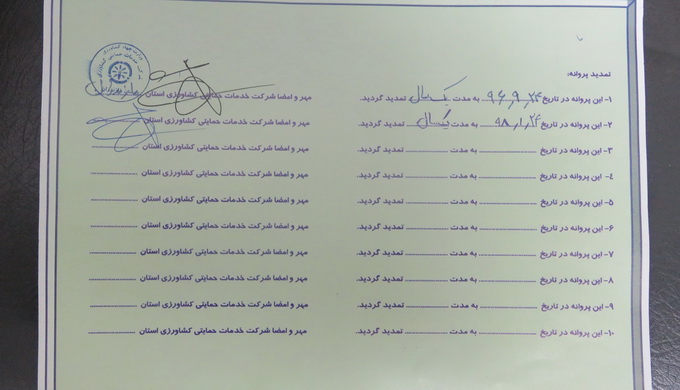 تمدید پروانه:
۱- این پروانه در تاریخ ۹۶,۹,۲۴ به مدت یکسال تمدید گردید. مهر و امضا شرکت خدمات حمایتی کشاورزی استان
۲- این پروانه در تاریخ ۹۸,۱,۲۴ به مدت یکسال تمدید گردید. مهر و امضا شرکت خدمات حمایتی کشاورزی استان
۳- این پروانه در تاریخ ........ به مدت ........ تمدید گردید. مهر و امضا شرکت خدمات حمایتی کشاورزی استان ........
۴- این پروانه در تاریخ ........ به مدت ........ تمدید گردید. مهر و امضا شرکت خدمات حمایتی کشاورزی استان ........
۵- این پروانه در تاریخ ........ به مدت ........ تمدید گردید. مهر و امضا شرکت خدمات حمایتی کشاورزی استان ........
۶- این پروانه در تاریخ ........ به مدت ........ تمدید گردید. مهر و امضا شرکت خدمات حمایتی کشاورزی استان ........
۷- این پروانه در تاریخ ........ به مدت ........ تمدید گردید. مهر و امضا شرکت خدمات حمایتی کشاورزی استان ........
۸- این پروانه در تاریخ ........ به مدت ........ تمدید گردید. مهر و امضا شرکت خدمات حمایتی کشاورزی استان ........
۹- این پروانه در تاریخ ........ به مدت ........ تمدید گردید. مهر و امضا شرکت خدمات حمایتی کشاورزی استان ........
۱۰- این پروانه در تاریخ ........ به مدت ........ تمدید گردید. مهر و امضا شرکت خدمات حمایتی کشاورزی استان ........